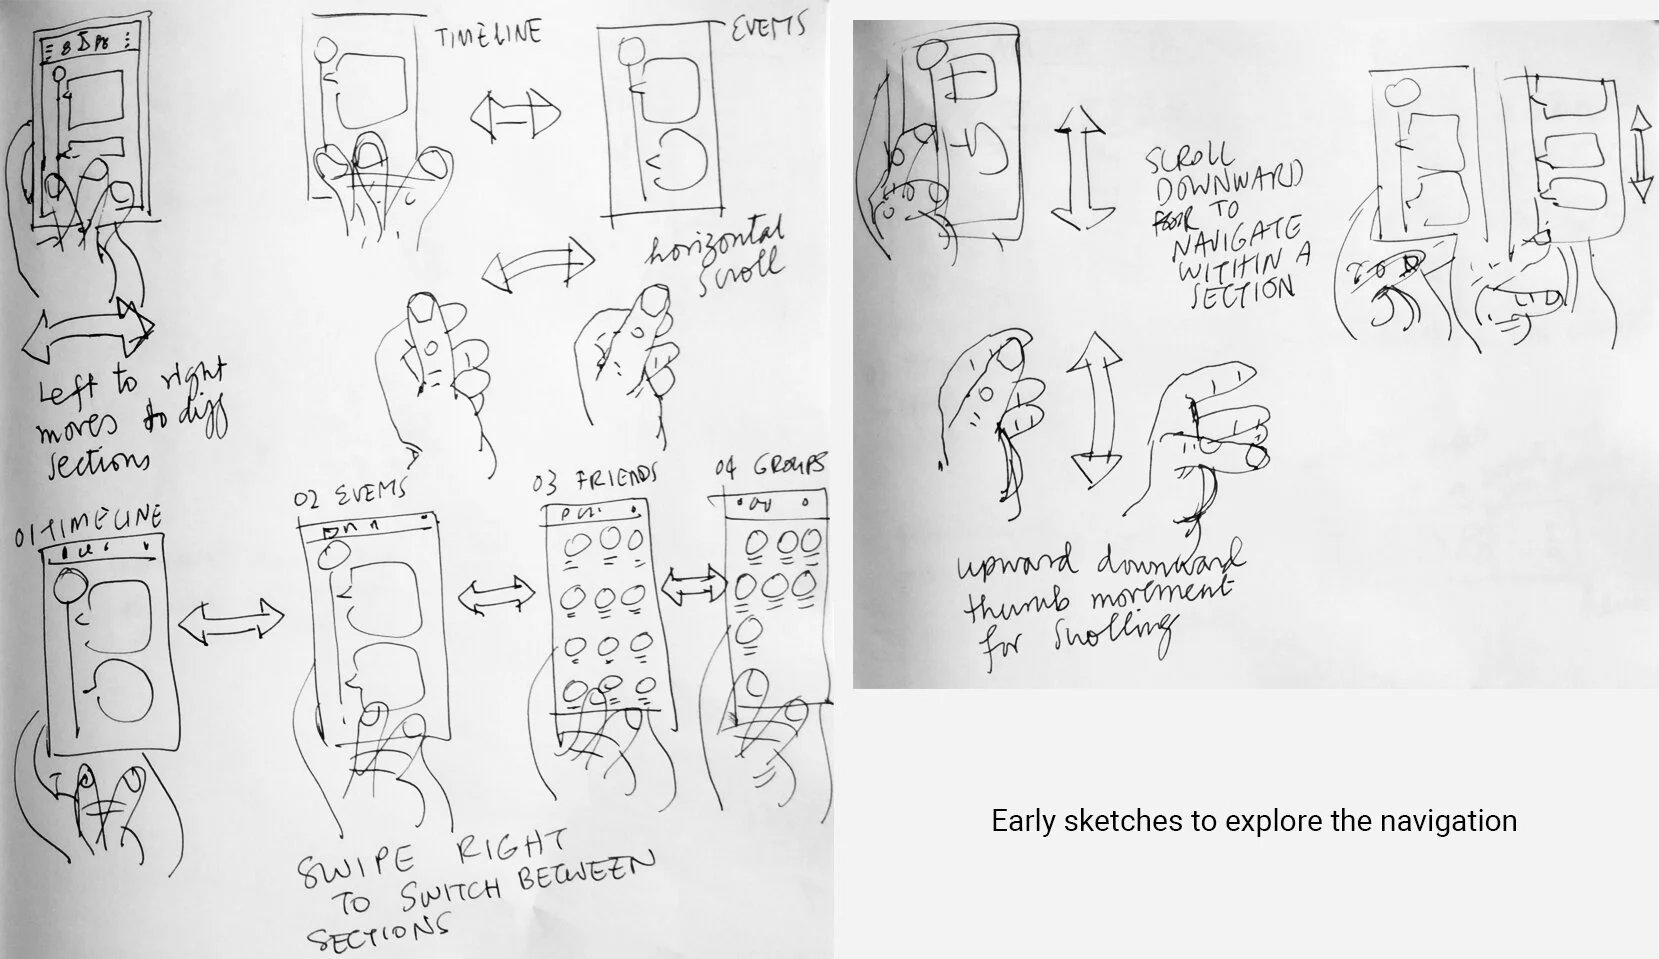 TIMELINE
EVENTS
horizontal
scroll
Left to right
moves to diff
sections
01 TIMELINE
02 EVENTS
03 FRIENDS
04 GROUPS
SWIPE RIGHT
TO SWITCH BETWEEN
SECTIONS
SCROLL
DOWNWARD
TO
NAVIGATE
WITHIN A
SECTION
upward downward
thumb movement
for scrolling
Early sketches to explore the navigation